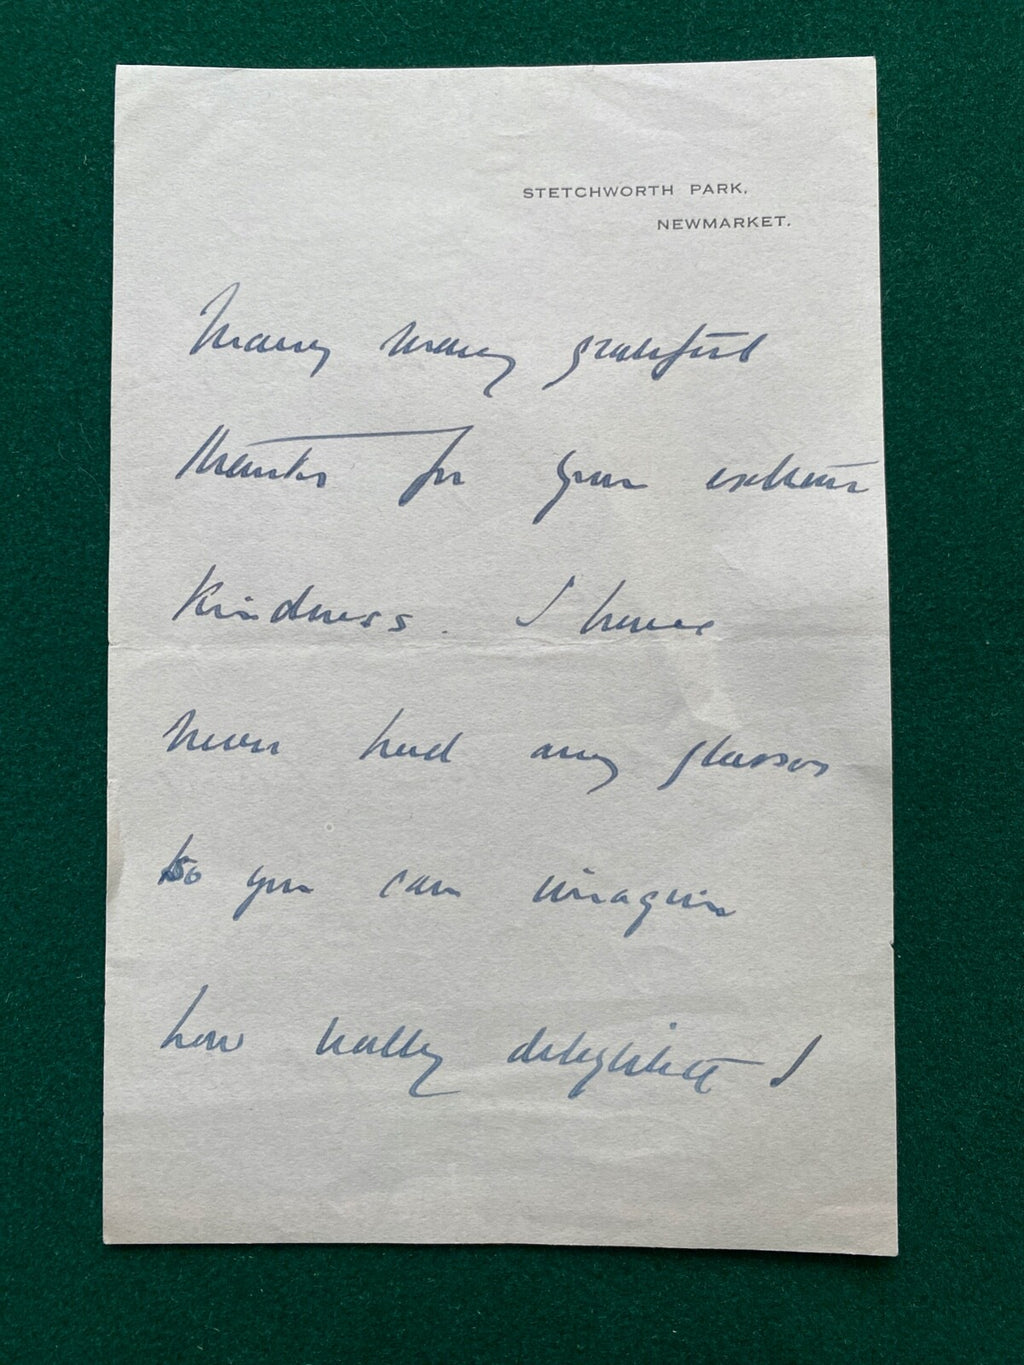 STETCHWORTH PARK,
NEWMARKET.
Many many grateful
thanks for your extreme
kindness. I have
never had any glasses
so you can imagine
how really delighted I